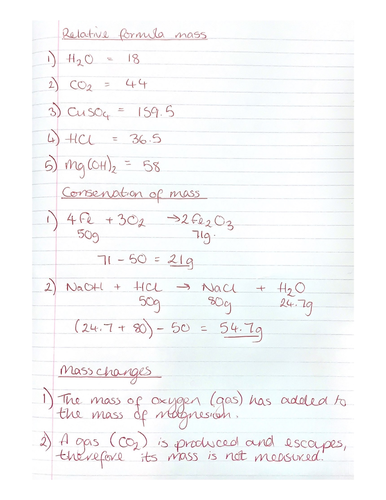 Relative formula mass
1) H₂O = 18
2) CO₂ = 44
3) CuSO₄ = 159.5
4) HCl = 36.5
5) Mg(OH)₂ = 58
Conservation of mass
1) 4Fe + 3O₂ → 2Fe₂O₃
50g 71g.
71 - 50 = 21g
2) NaOH + HCl → NaCl + H₂O
50g 80g 24.7g
(24.7 + 80) - 50 = 54.7g
Mass changes
1) The mass of oxygen (gas) has added to
the mass of magnesium.
2) A gas (CO₂) is produced and escapes,
therefore its mass is not measured.